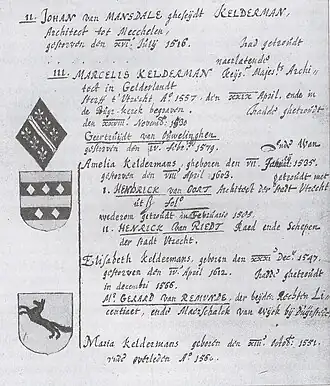 II. JOHAN van MANSDALE gheseijdt KELDERMAN,
Architect tot Mecchelen,
gestorven den XVI. Julij 1516. Had getroudt
naerlatende
III. MARCELIS KELDERMAN Keijs. Majests. Archi-
tect in Gelderlandt
sterft t'Utrecht Ao. 1557. den XXIX April, ende in
de kerck begraven.
Hadde getroudt
den XXVIII. Novemb.
Geertruidt van
gestorven den IV. 1579.
Amelia Keldermans, gheboren den VII. 1535.
gestorven den VIII April 1603. getroudt met
I. HENDRICK van OORT Architect der stadt Utrecht
wederom getroudt in
II. HENRICK van RIEDT Raed ende Schepen
der stadt Utrecht.
Elisabeth Keldermans, geboren den XXXI Decr. 1547.
gestorven den IV. April 1612. Hadde getroudt
in decemb 1566.
Mr. GERARD van REMUNDE, der beijden Rechten Li-
centiaet, ende Maerschalck van Wijck bij
Maria Keldermans geboren den XIII. 1552.
ende overleden Ao 1560.